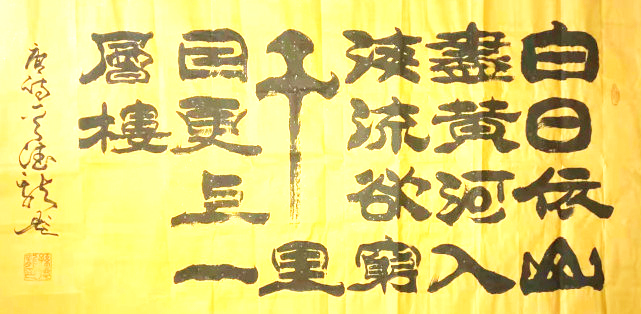 白日依山
盡黄河入
海流欲窮
千里
目更上一
層樓
唐詩一